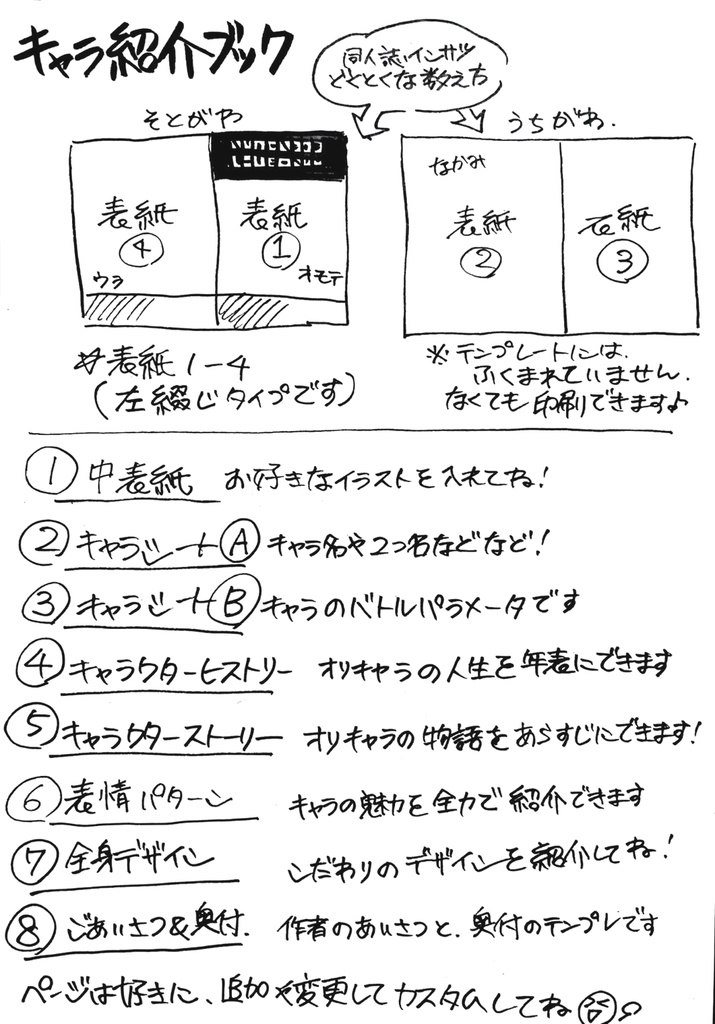 キャラ紹介ブック
同人誌インサツ
どくとくな数え方
そとがわ
うちがわ.
表紙
④
ウラ
表紙
①
オモテ
なかみ
表紙
②
表紙
③
表紙1-4
(左綴じタイプです)
※テンプレートには、
ふくまれていません.
なくても印刷できます♪
① 中表紙 お好きなイラストを入れてね!
② キャラシートⒶ キャラ名や2つ名などなど!
③ キャラシートⒷ キャラのバトルパラメータです
④ キャラクターヒストリー オリキャラの人生を年表にできます
⑤ キャラクターストーリー オリキャラの物語をあらすじにできます!
⑥ 表情パターン キャラの魅力を全力で紹介できます
⑦ 全身デザイン こだわりのデザインを紹介してね!
⑧ ごあいさつ&奥付. 作者のあいさつと、奥付のテンプレです
ページは好きに、追加や変更してカスタムしてね